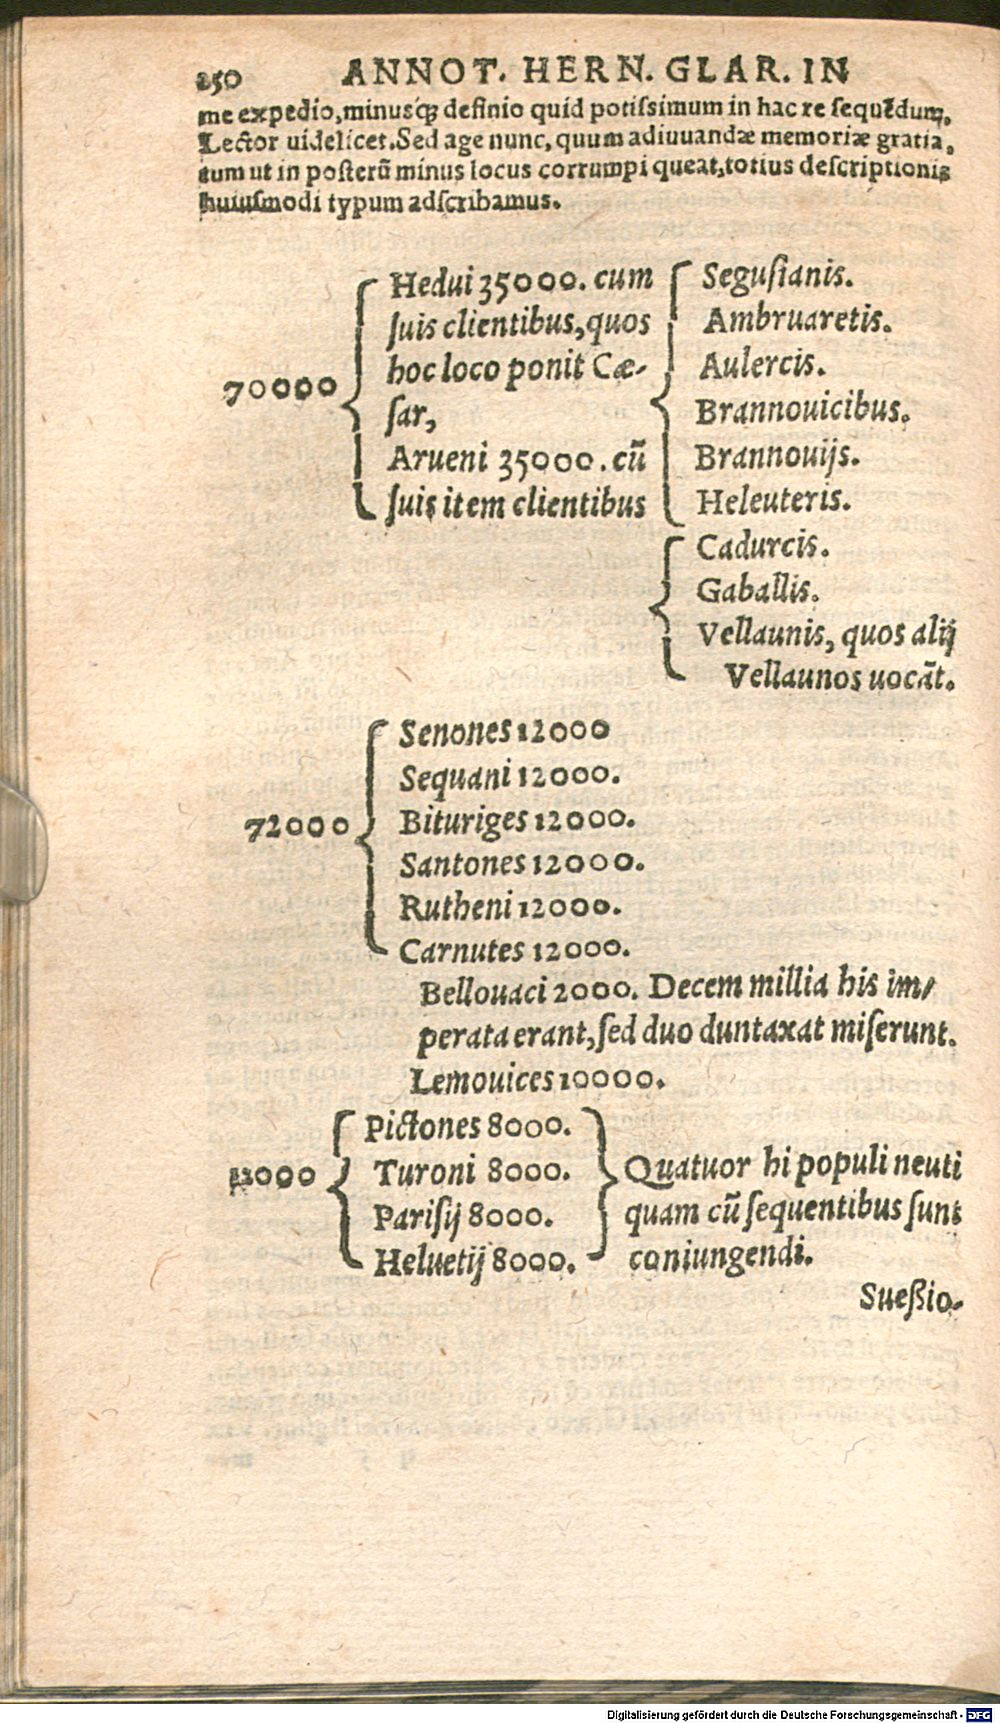 250 ANNOT. HERN. GLAR. IN
me expedio, minusq́ꝫ definio quid potiſsimum in hac re ſequẽdum,
Lector uidelicet. Sed age nunc, quum adiuuandæ memoriæ gratia,
tum ut in poſterũ minus locus corrumpi queat, totius deſcriptionis
huiuſmodi typum adſcribamus.
70000
Hedui 35000. cum
ſuis clientibus, quos
hoc loco ponit Cæ-
ſar,
Arueni 35000. cũ
ſuis item clientibus
Seguſianis.
Ambruaretis.
Aulercis.
Brannouicibus.
Brannouijs.
Heleuteris.
Cadurcis.
Gaballis.
Vellaunis, quos alij
Vellaunos uocãt.
72000
Senones 12000
Sequani 12000.
Bituriges 12000.
Santones 12000.
Rutheni 12000.
Carnutes 12000.
Bellouaci 2000. Decem millia his im/
perata erant, ſed duo duntaxat miſerunt.
Lemouices 10000.
Pictones 8000.
Turoni 8000.
Pariſij 8000.
Heluetij 8000.
Quatuor hi populi neuti
quam cũ ſequentibus ſunt
coniungendi.
Sueßio-
Digitalisierung gefördert durch die Deutsche Forschungsgemeinschaft - DFG